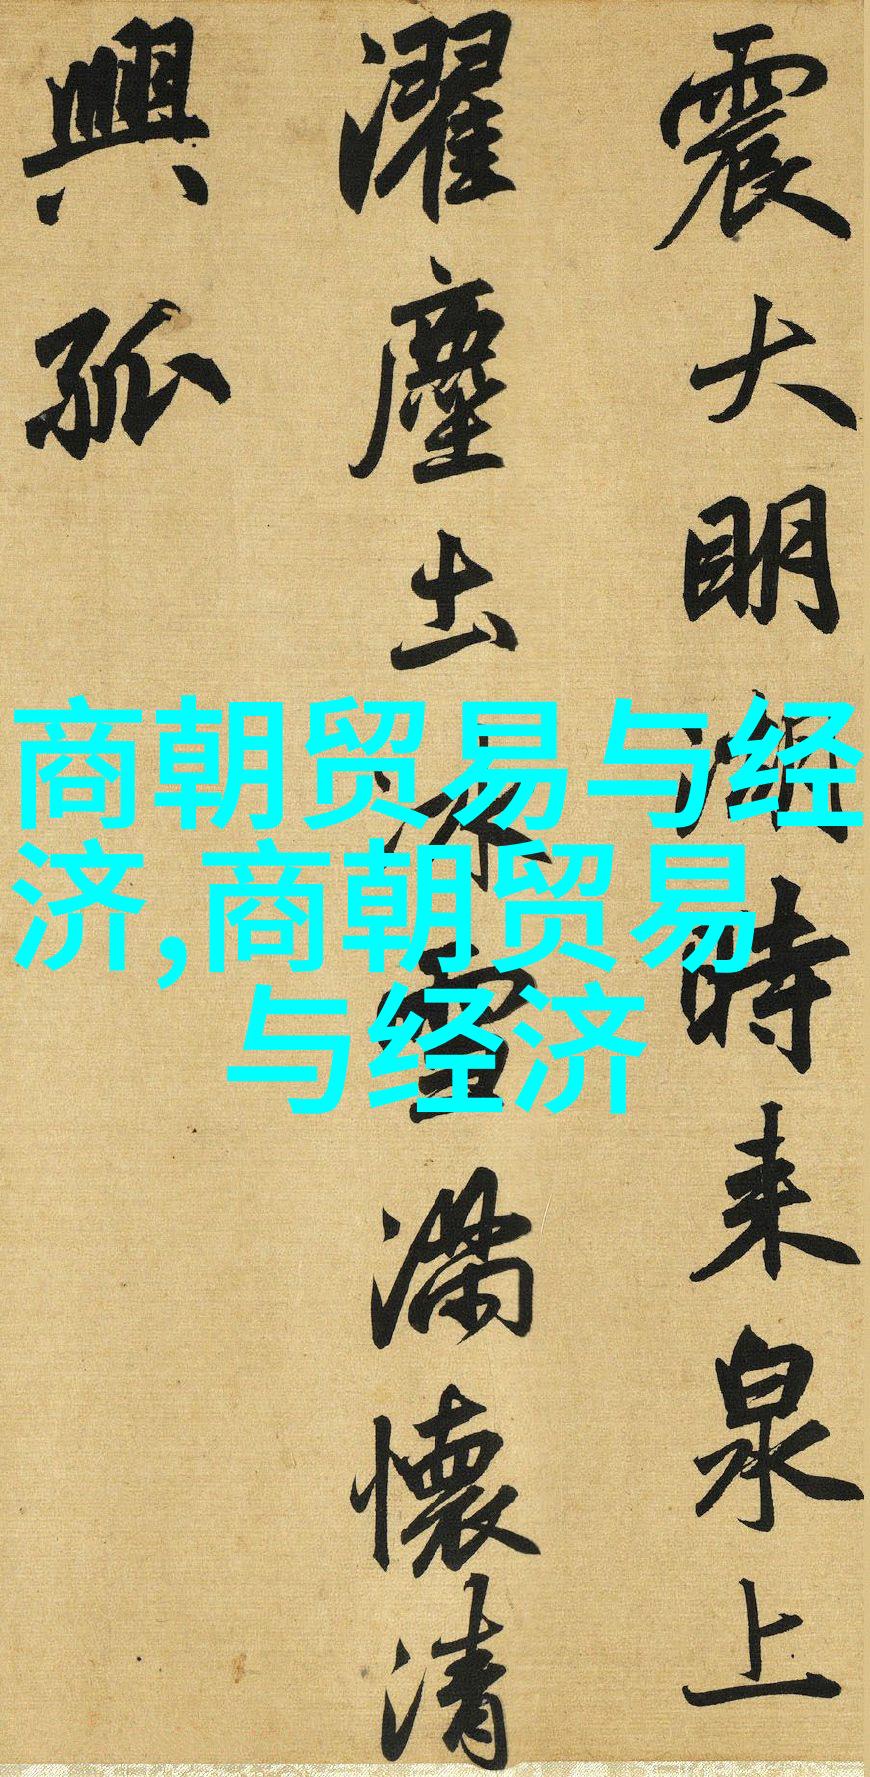 震大明湖時来泉上
濯塵土冰雪滿懷清
興孤
商朝贸易与经
济,商朝贸易
与经济